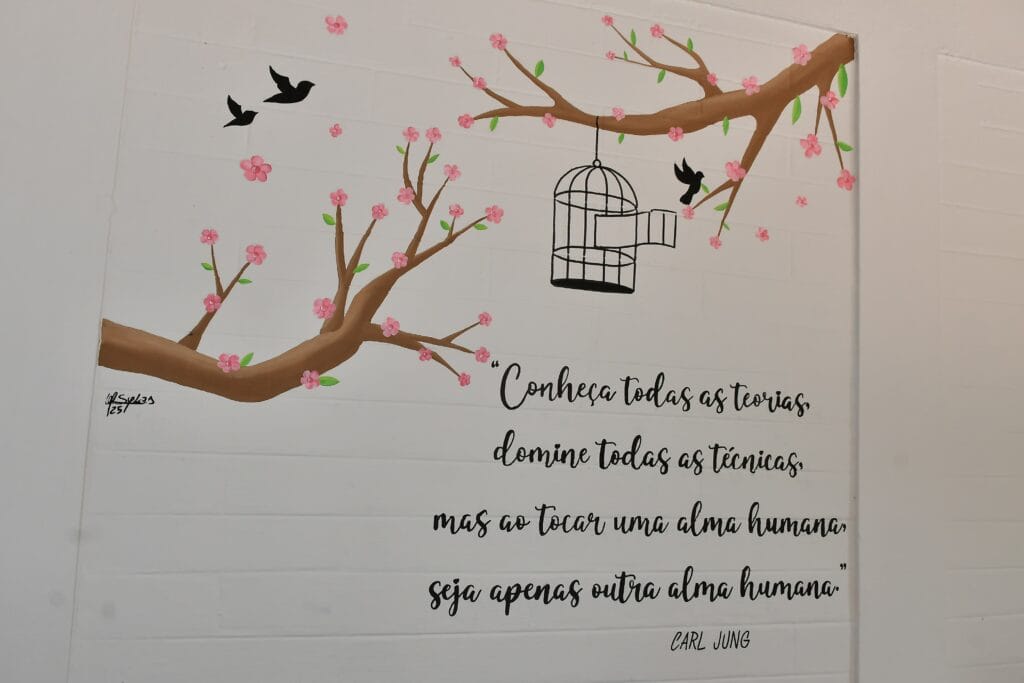 "Conheça todas as teorias,
domine todas as técnicas,
mas ao tocar uma alma humana,
seja apenas outra alma humana."
CARL JUNG
/25